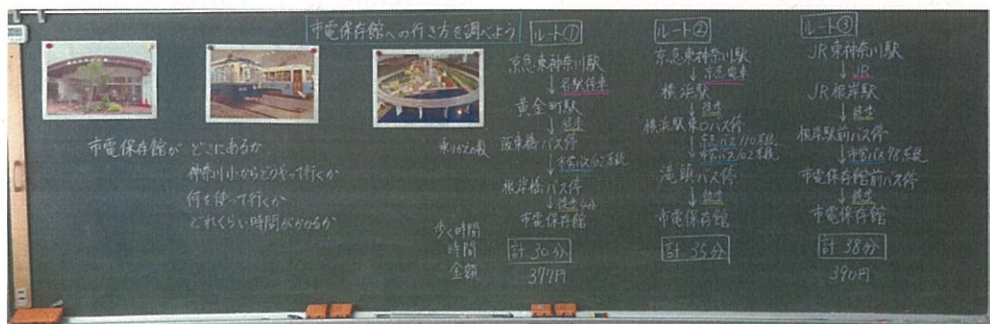 市電保存館への行き方を調べよう
市電保存館が どこにあるか
神奈川小からどうやって行くか
何を使って行くか
どれくらい時間がかかるか
乗りかえの数
歩く時間
時間
金額
ルート①
京急東神奈川駅
↓各駅停車
黄金町駅
↓徒歩
阪東橋バス停
↓市営バス102系統
根岸橋バス停
↓徒歩4分
市電保存館
計30分
377円
ルート②
京急東神奈川駅
↓京急電車
横浜駅
↓徒歩
横浜駅東口バス停
↓市営バス110系統
市営バス102系統
滝頭バス停
↓徒歩
市電保存館
計35分
ルート③
JR東神奈川駅
↓JR
JR根岸駅
↓徒歩
根岸駅前バス停
↓市営バス98系統
市電保存館前バス停
↓徒歩
市電保存館
計38分
390円